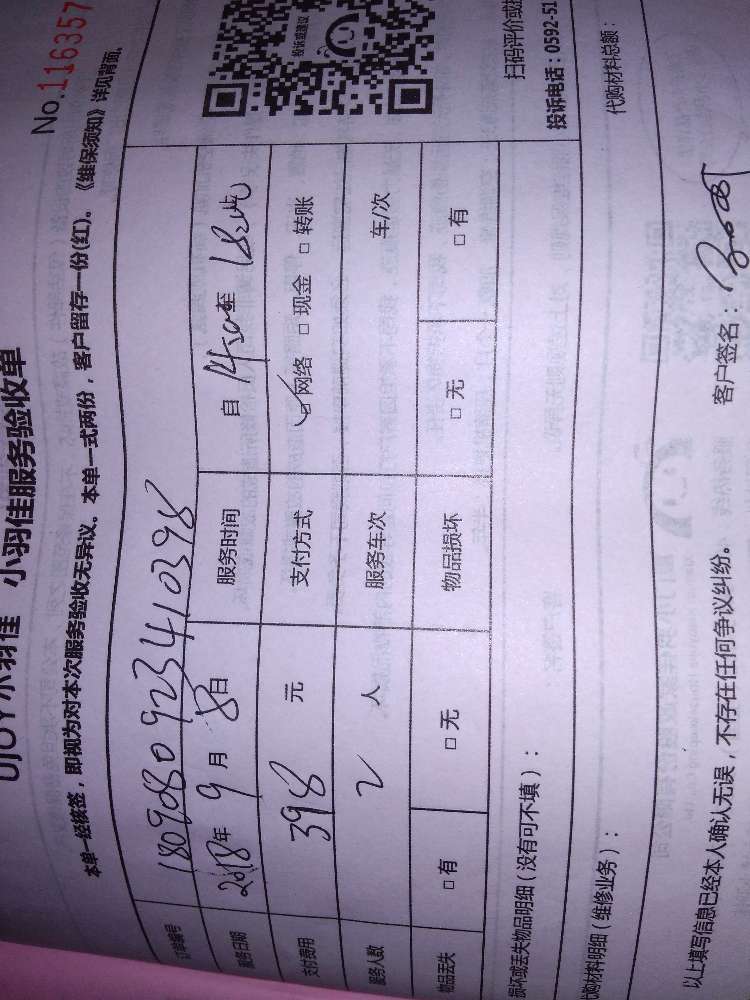 UJOY小羽佳 小羽佳服务验收单
No.116357
本单一经核签，即视为对本次服务验收无异议。本单一式两份，客户留存一份(红)。《维保须知》详见背面。
订单编号 180908092341 0398
服务日期 2018年 9月 8日 服务时间 自 1450至
支付费用 398 元 支付方式 ☑网络 □现金 □转账
服务人数 2 人 服务车次 车/次
物品丢失 □有 □无 物品损坏 □无 □有
投诉或建议
扫码评价或
损坏或丢失物品明细（没有可不填）：
投诉电话：0592-51
代购材料明细（维修业务）：
代购材料总额：
以上填写信息已经本人确认无误，不存在任何争议纠纷。
客户签名：